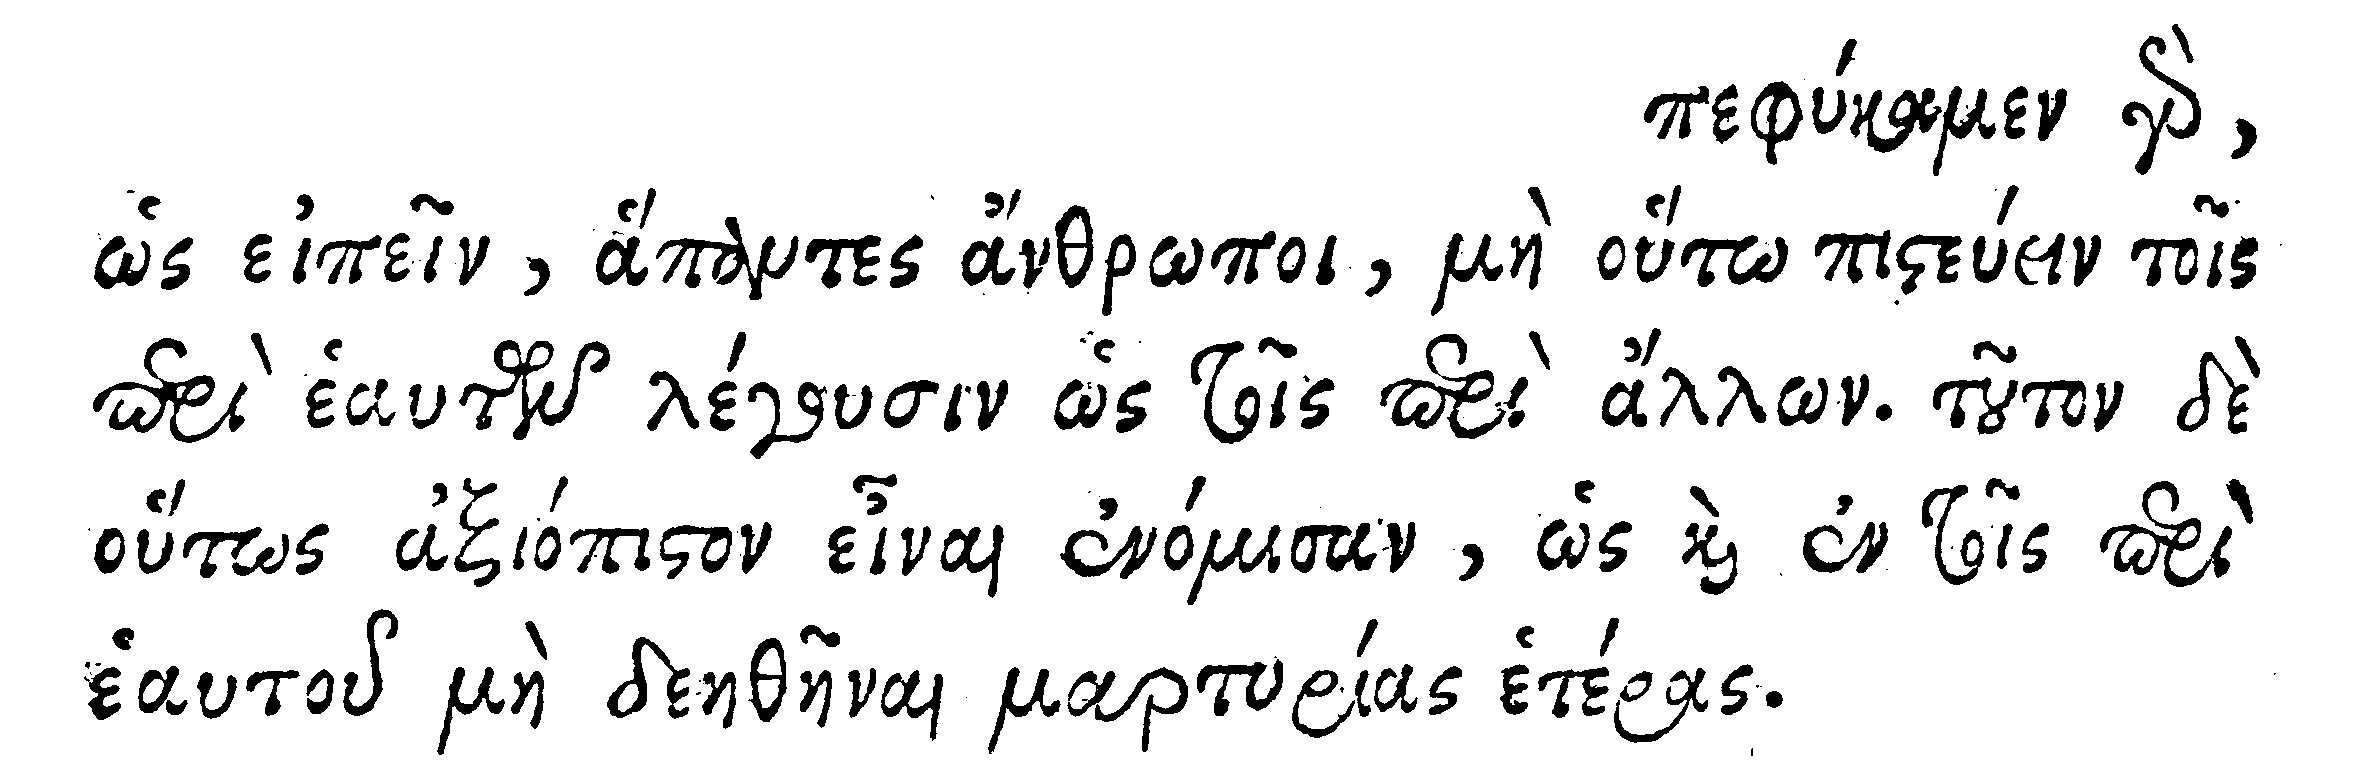 πεφύκαμεν γὰρ,
ὡς εἰπεῖν, ἅπαντες ἄνθρωποι, μὴ οὕτω πιστεύειν τοῖς
περὶ ἑαυτῶν λέγουσιν ὡς τοῖς περὶ ἄλλων. τοῦτον δὲ
οὕτως ἀξιόπιστον εἶναι ἐνόμισαν, ὡς καὶ ἐν τοῖς περὶ
ἑαυτοῦ μὴ δεηθῆναι μαρτυρίας ἑτέρας.